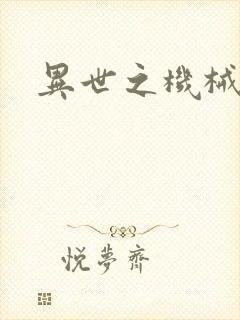 異世之機械
悦夢齋